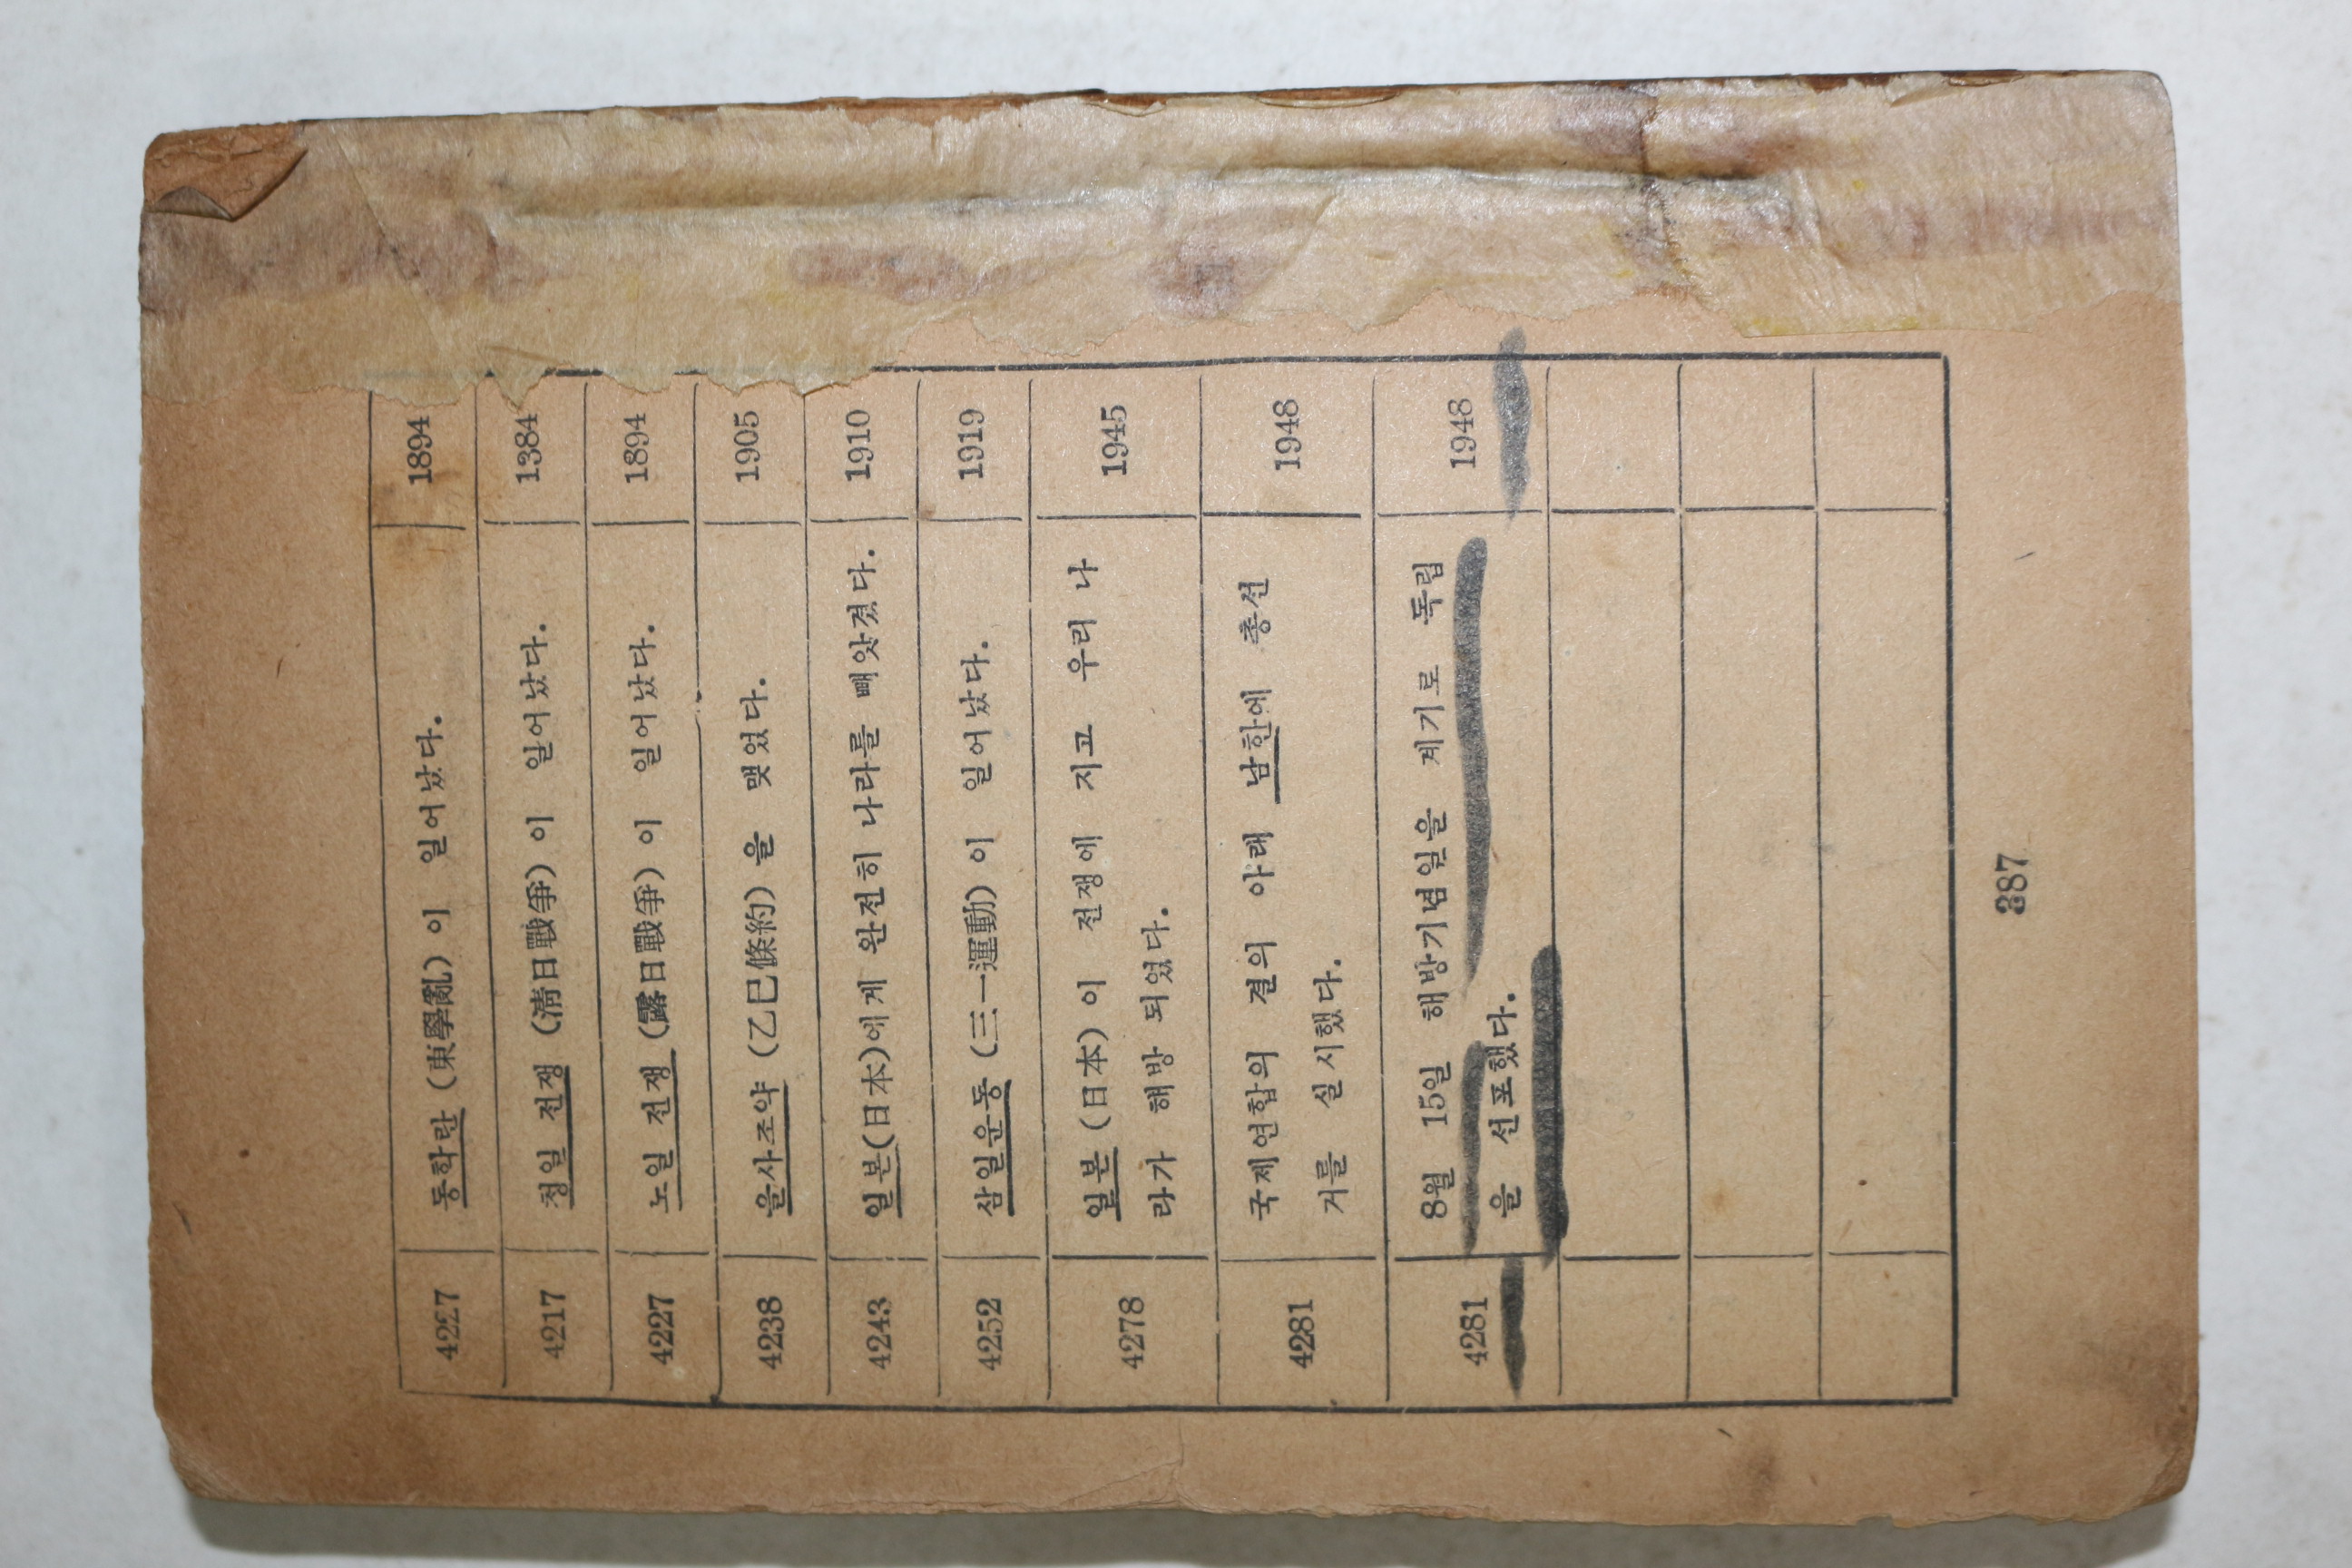 4227 동학란 (東學亂) 이 일어났다. 1894
4217 청일 전쟁 (淸日戰爭) 이 일어났다. 1384
4227 노일 전쟁 (露日戰爭) 이 일어났다. 1894
4238 을사조약 (乙巳條約) 을 맺었다. 1905
4243 일본(日本)에게 완전히 나라를 빼앗겼다. 1910
4252 삼일운동 (三一運動) 이 일어났다. 1919
4278 일본 (日本) 이 전쟁에 지고 우리 나 1945
라가 해방 되었다.
4281 국제연합의 결의 아래 남한에 총선 1948
거를 실시했다.
4281 8월 15일 해방기념일을 계기로 독립 1948
을 선포했다.
387